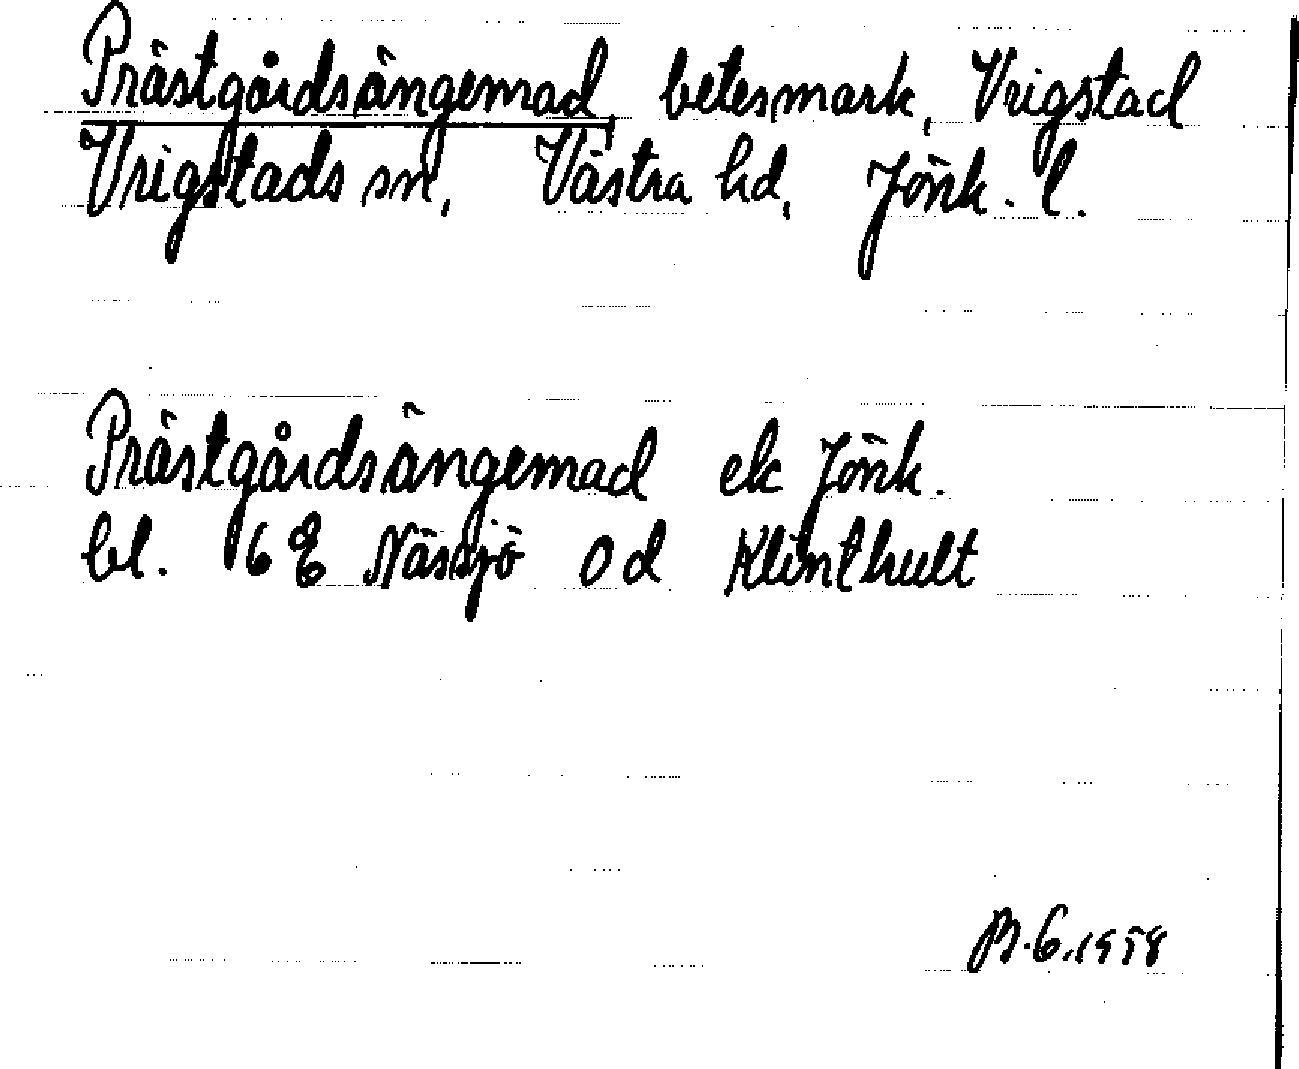 Prästgårdsängemad betesmark, Vrigstad
Vrigstads sn, Västra hd, Jönk. l.
Prästgårdsängemad ek Jönk.
bl. 6E Nässjö 0d Klinthult
B.G.1958